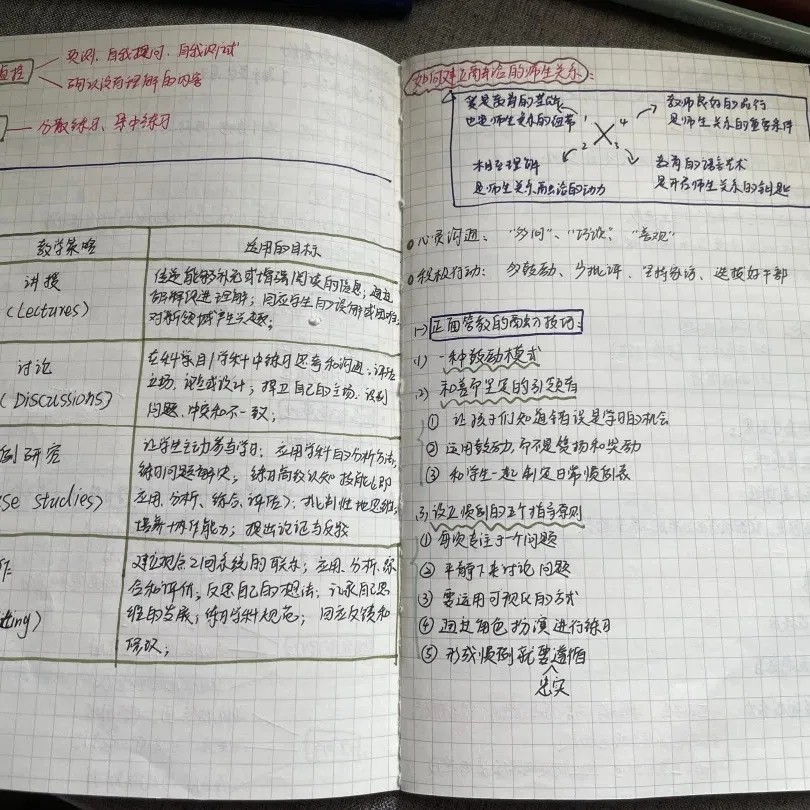 监控
预测、自我提问、自我测试
确认没有理解的内容
分散练习、集中练习
教学策略
适用的目标
讲授
(Lectures)
传递能够补充或增强阅读的信息;通过
解释促进理解;回应学生的误解或困难;
对新领域产生兴趣;
讨论
(Discussions)
在科学目/学科中练习思考和沟通;评估
立场、论点或设计;捍卫自己的主场、识别
问题、冲突和不一致;
例研究
se studies)
让学生主动参与学习;应用学科的分析方法,
练习问题解决;练习高级认知技能(即
应用、分析、综合、评估);批判性地思维;
培养协作能力;提出论证与反驳
作
iting)
建立观点之间系统的联系;应用、分析、综
合和评价;反思自己的想法;记录自己思
维的发展;练习学科规范;回应反馈和
修改;
如何建立融洽的师生关系:
爱是教育的基础
也是师生关系的纽带
教师良好的品行
是师生关系的重要条件
1
4
2
3
相互理解
是师生关系融洽的动力
教育的语言艺术
是开启师生关系的钥匙
心灵沟通:“多问”、“巧谈”、“善观”
积极行动:多鼓励、少批评、坚持家访、选拔好干部
(一)正面管教的高效力技巧:
(1)一种鼓励模式
(2)和善而坚定的引领者
① 让孩子们知道错误是学习的机会
② 运用鼓励,而不是赞扬和奖励
③ 和学生一起制定日常惯例表
(3)设立惯例的五个指导原则
① 每次专注于一个问题
② 平静下来讨论问题
③ 要运用可视化的方式
④ 通过角色扮演进行练习
⑤ 形成惯例就要遵循
忠实